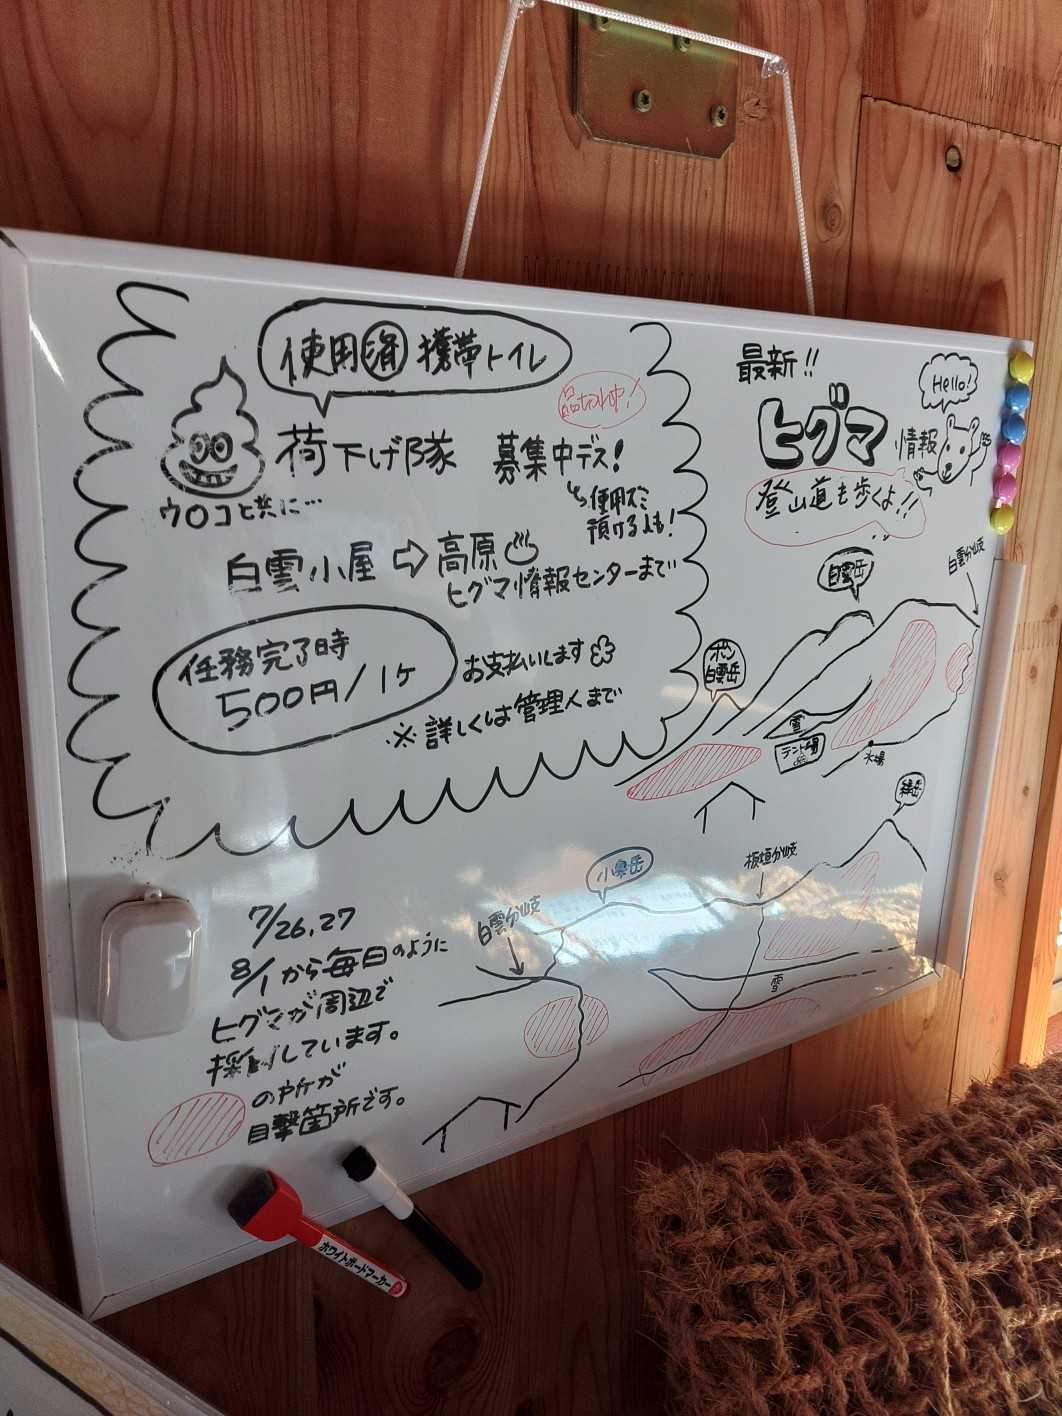 使用済携帯トイレ
品切れ中!
荷下げ隊 募集中デス!
ウロコと共に…
↳使用ズミ
預けるよも!
白雲小屋 ⇨ 高原♨
ヒグマ情報センターまで
任務完了時
500円/1ケ
お支払いします
※詳しくは管理人まで
最新!!
Hello!
ヒグマ
情報
登山道も歩くよ!!
白雲岳
白雲分岐
ポン
白雲岳
雪
テント場
水場
緑岳
板垣分岐
小泉岳
白雲分岐
雪
7/26,27
8/1から毎日のように
ヒグマが周辺で
採食しています。
の所が
目撃箇所です。
ホワイトボードマーカー